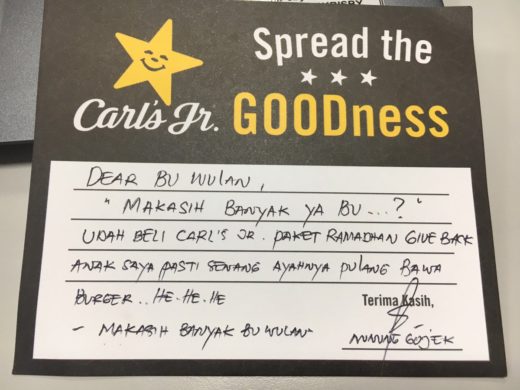 Spread the
Carl's Jr. GOODness
DEAR BU WULAN,
" MAKASIH BANYAK YA BU...? "
UDAH BELI CARL'S JR. PAKET RAMADHAN GIVE BACK
ANAK SAYA PASTI SENANG AYAHNYA PULANG BAWA
BURGER.. HE. HE. HE
Terima Kasih,
- MAKASIH BANYAK BU WULAN -
GOJEK